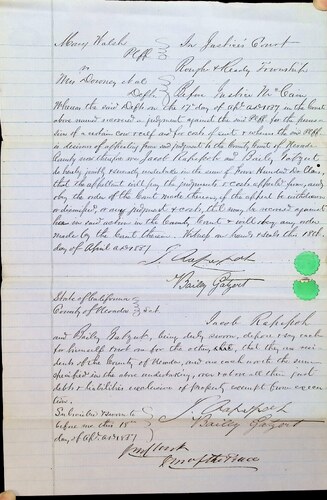 Mary Walsh
Plff
vs
Wm Downey et al
Defts
In Justice's Court
Rough & Ready Township
Before Justice McCam
Whereas the said Defts on the 17th day of Apl A.D. 1857 in the Court
above named recovered a judgment against the said Plff for the posses-
sion of a certain cow & calf and for costs of suit & whereas the said Plff
is desirous of appealing from said judgment to the County Court of Nevada
County now therefore we Jacob Rapepoh and Baily Gatzert
do hereby jointly & severally undertake in the sum of Three Hundred Dollars,
that the appellant will pay the judgment & costs appealed from, and
obey the order of the Court made therein, if the appeal be withdrawn
or dismissed, or any judgment & costs that may be recovered against
her in said action in the County Court & will obey any order
made by the Court therein. Witness our hands & seals the 18th
day of April A.D. 1857
J. Rapepoh
Baily Gatzert
State of California
County of Nevada
Jacob Rapepoh
and Baily Gatzert, being duly sworn, deposes & says each
for himself & not one for the other, that they are resi-
dents of the County of Nevada, and are each worth the sum
specified in the above undertaking, over & above all their just
debts & liabilities exclusive of property exempt from execu-
tion.
Subscribed & sworn to
before me this 18
day of Apl A.D. 1857
J. Rapepoh
Baily Gatzert
Justice of the Peace